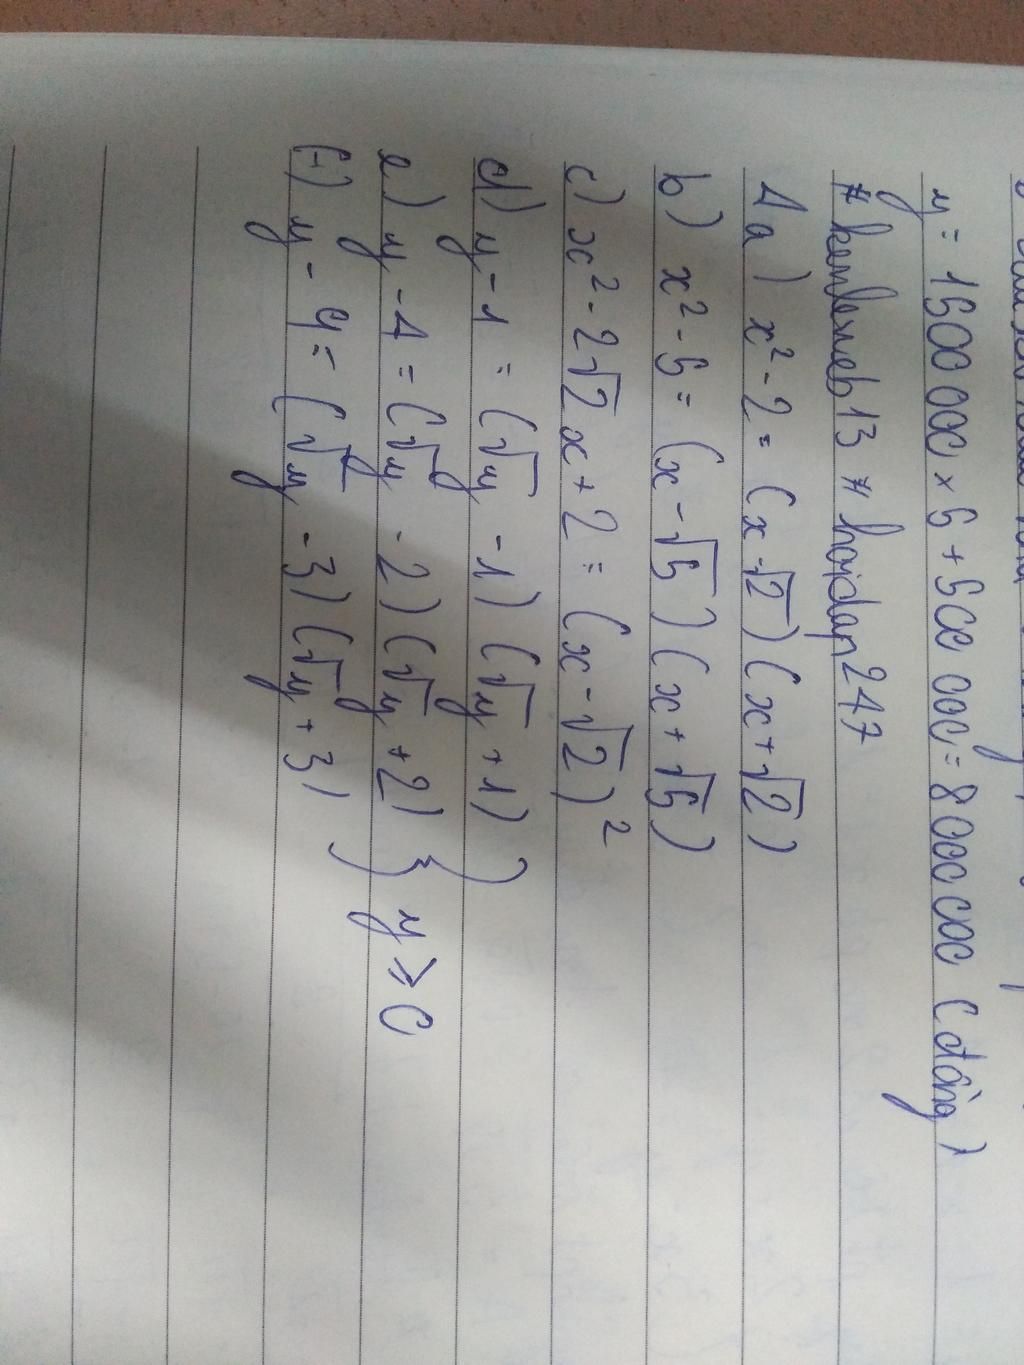 y = 1500 000 x 5 + 500 000 = 8 000 000 (đồng)
# kenlexeb13 # hoidap247
1a) x² - 2 = (x - √2)(x + √2)
b) x² - 5 = (x - √5)(x + √5)
c) x² - 2√2 x + 2 = (x - √2)²
d) y - 1 = (√y - 1)(√y + 1)
e) y - 4 = (√y - 2)(√y + 2) } y ≥ 0
f) y - 9 = (√y - 3)(√y + 3)